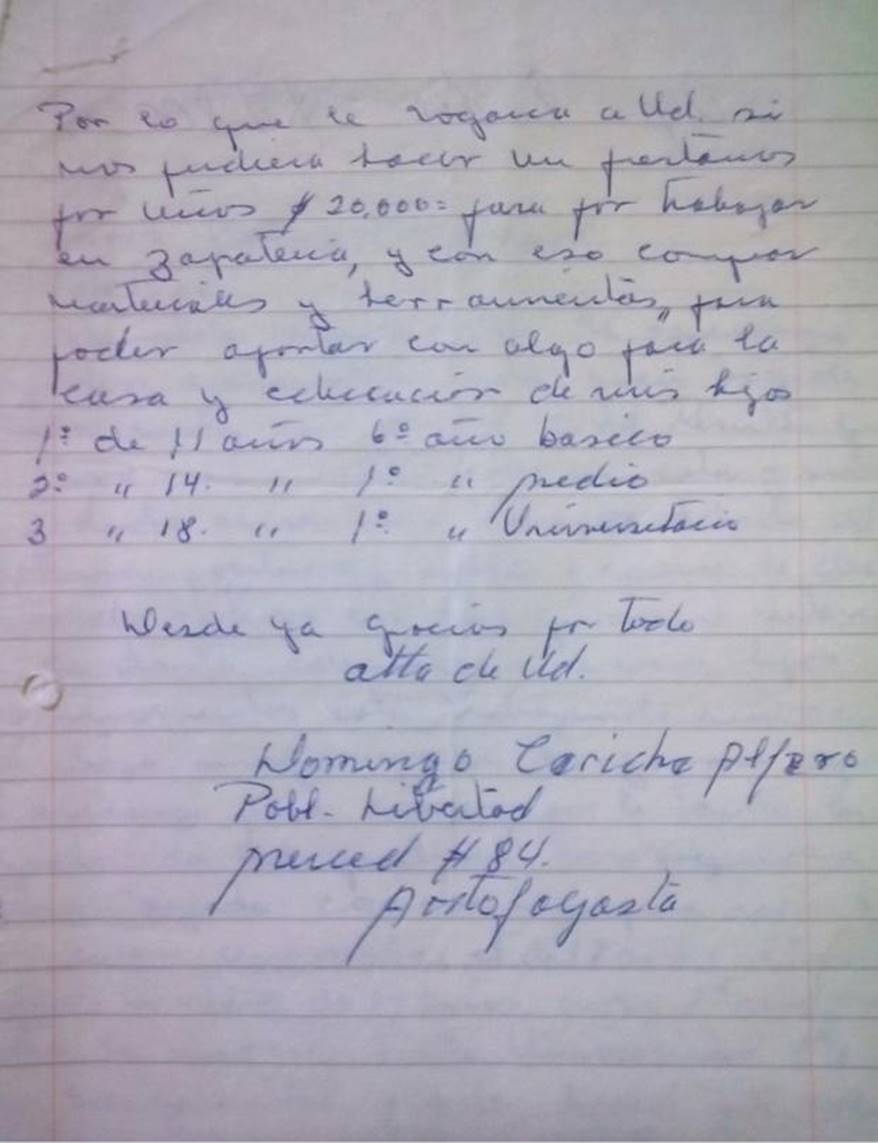 Por lo que le rogaria a Ud. si
nos pudiera hacer un prestamos
por unos $ 20,000= para por trabajar
en zapateria, y con eso comprar
materiales y herramientas, para
poder aportar con algo para la
casa y educacion de mis hijos
1º de 11 años 6º año basico
2º " 14. " 1º " medio
3 " 18. " 1º " Universitario
Desde ya gracias por todo
atta de Ud.
Domingo Alfaro
Pobl. Libertad
merced # 84.
Antofagasta